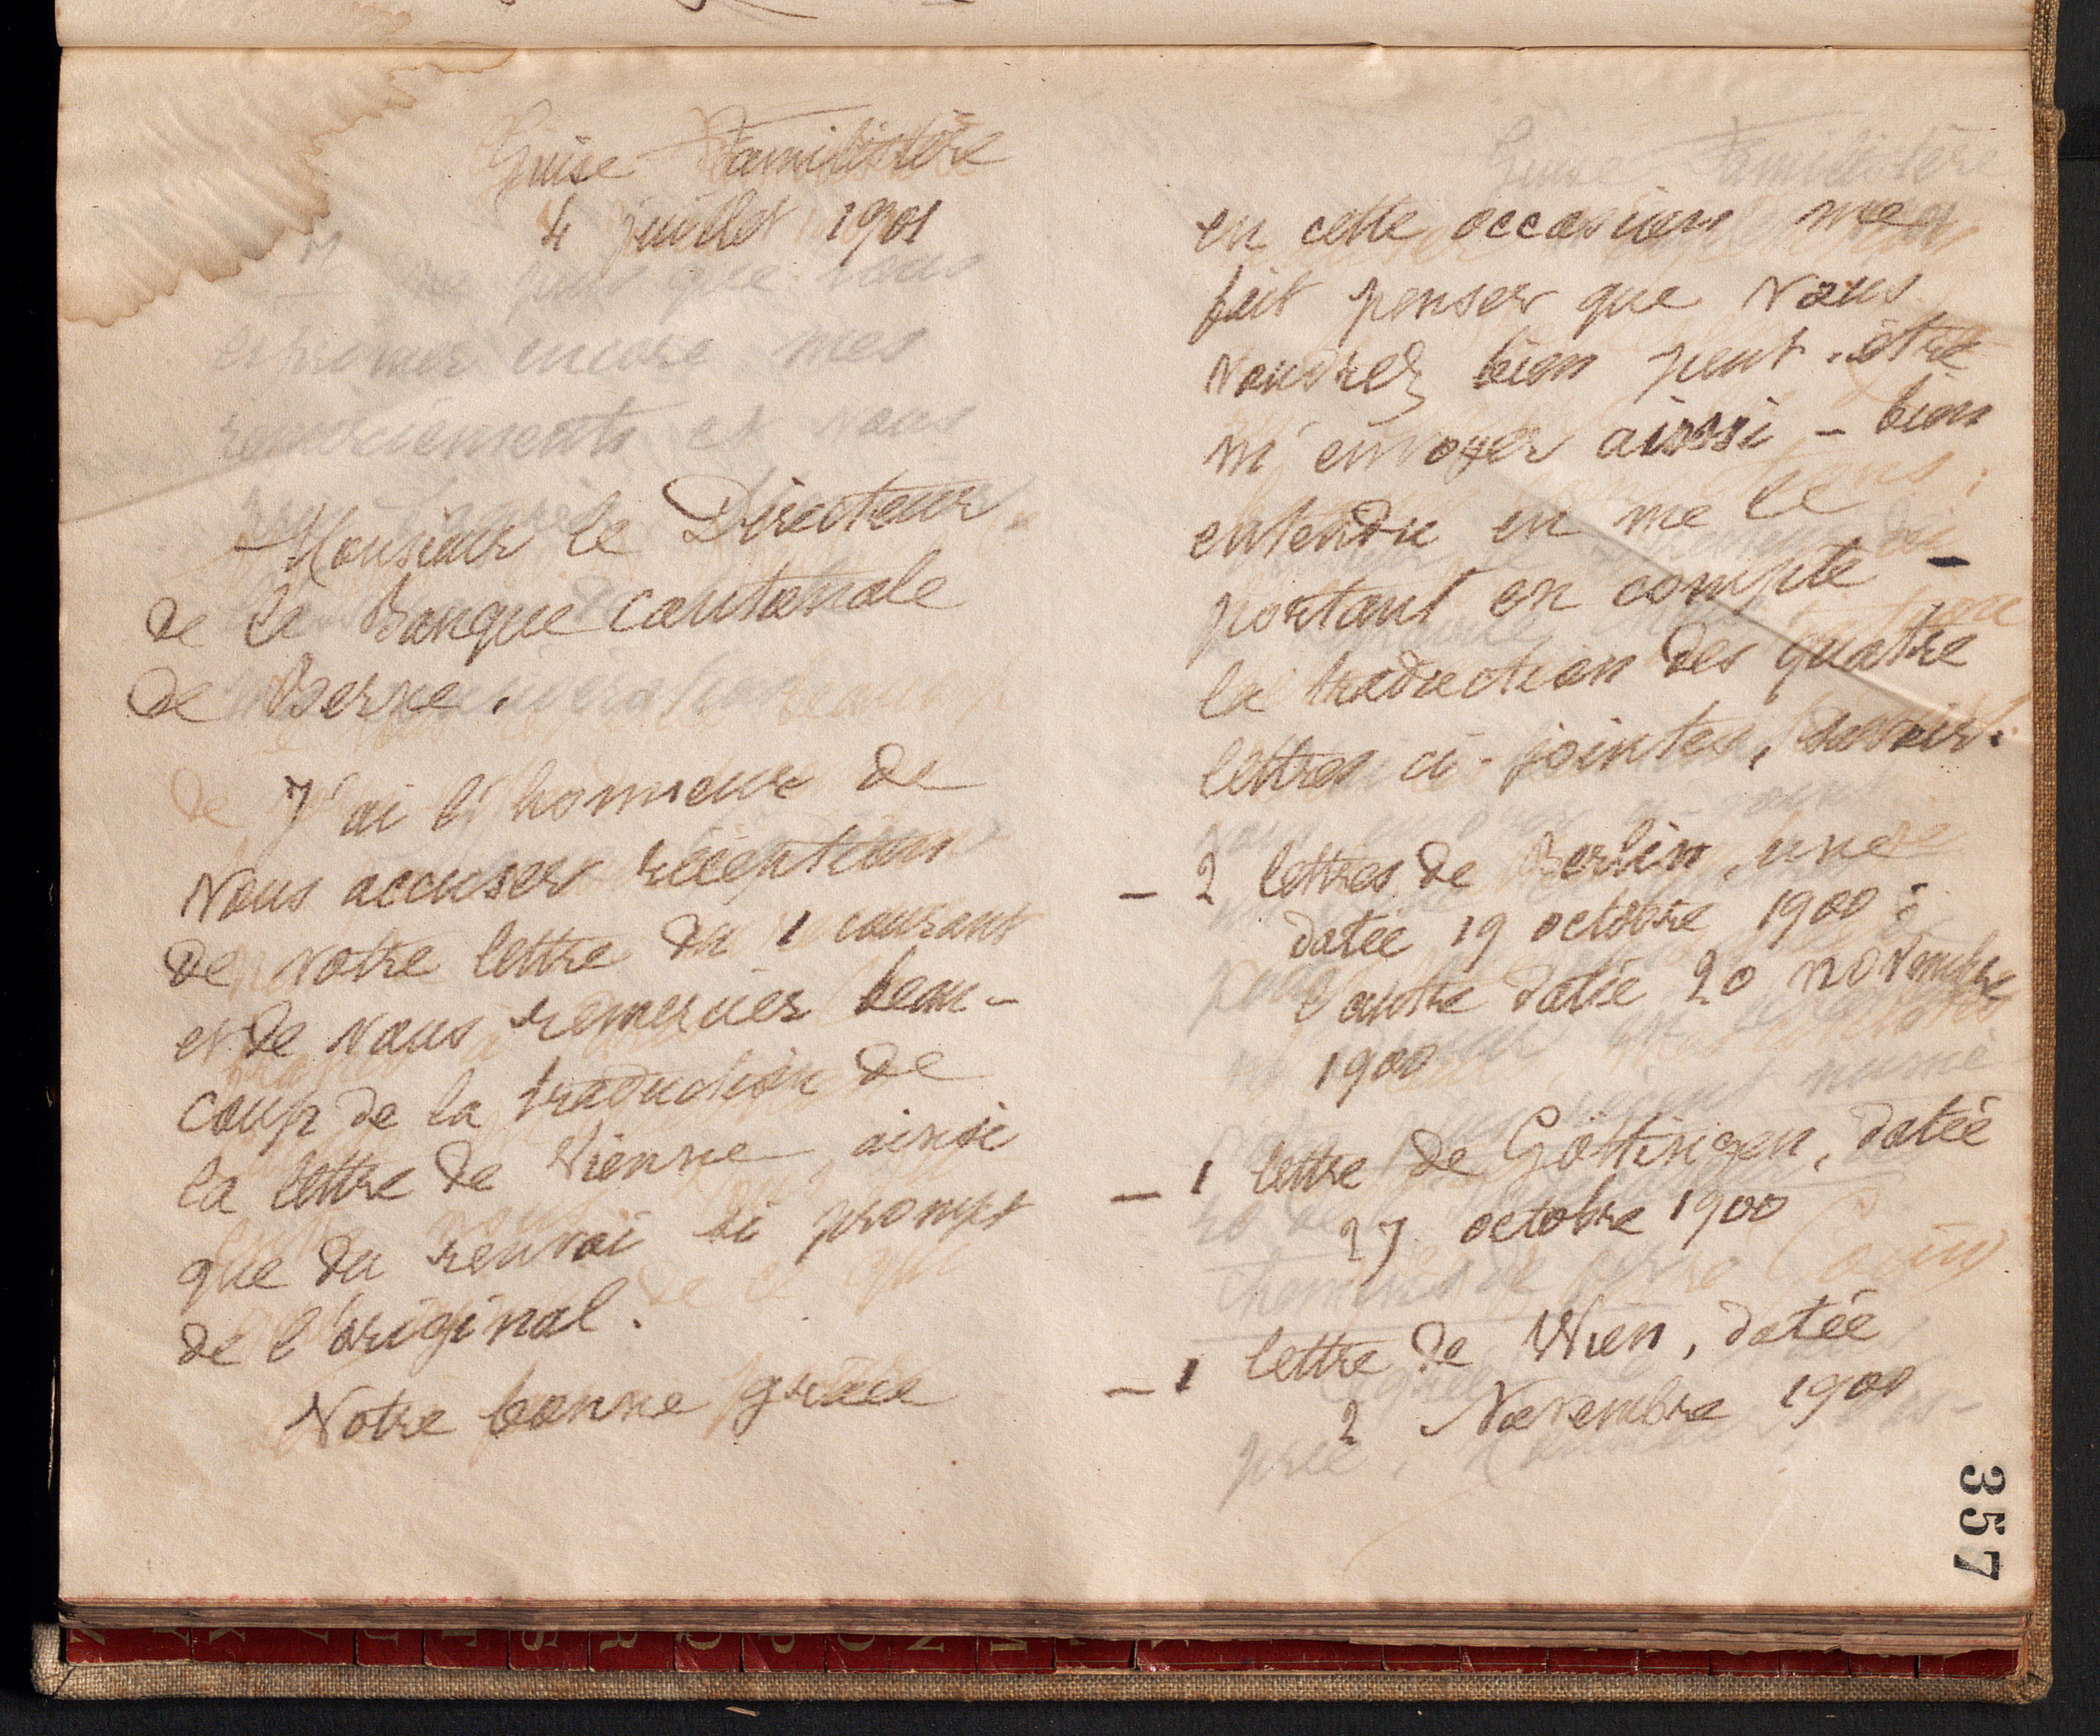 Guise Familistère
4 juillet 1901
Monsieur le Directeur
de la Banque cantonale
de Berne.
J'ai l'honneur de
vous accuser réception
de votre lettre du 1 courant
et de vous remercier beau-
coup de la traduction de
la lettre de Vienne, ainsi
que du renvoi si prompt
de l'original.
Votre bonne grâce
en cette occasion me
fait penser que vous
voudrez bien peut-être
m'envoyer aussi - bien
entendu en me le
portant en compte -
la traduction des quatre
lettres ci-jointes, savoir:
- 2 lettres de Berlin, une
datée 19 octobre 1900;
l'autre datée 20 novembre
1900
- 1 lettre de Göttingen, datée
27 octobre 1900
- 1 lettre de Wien, datée
2 Novembre 1900
357